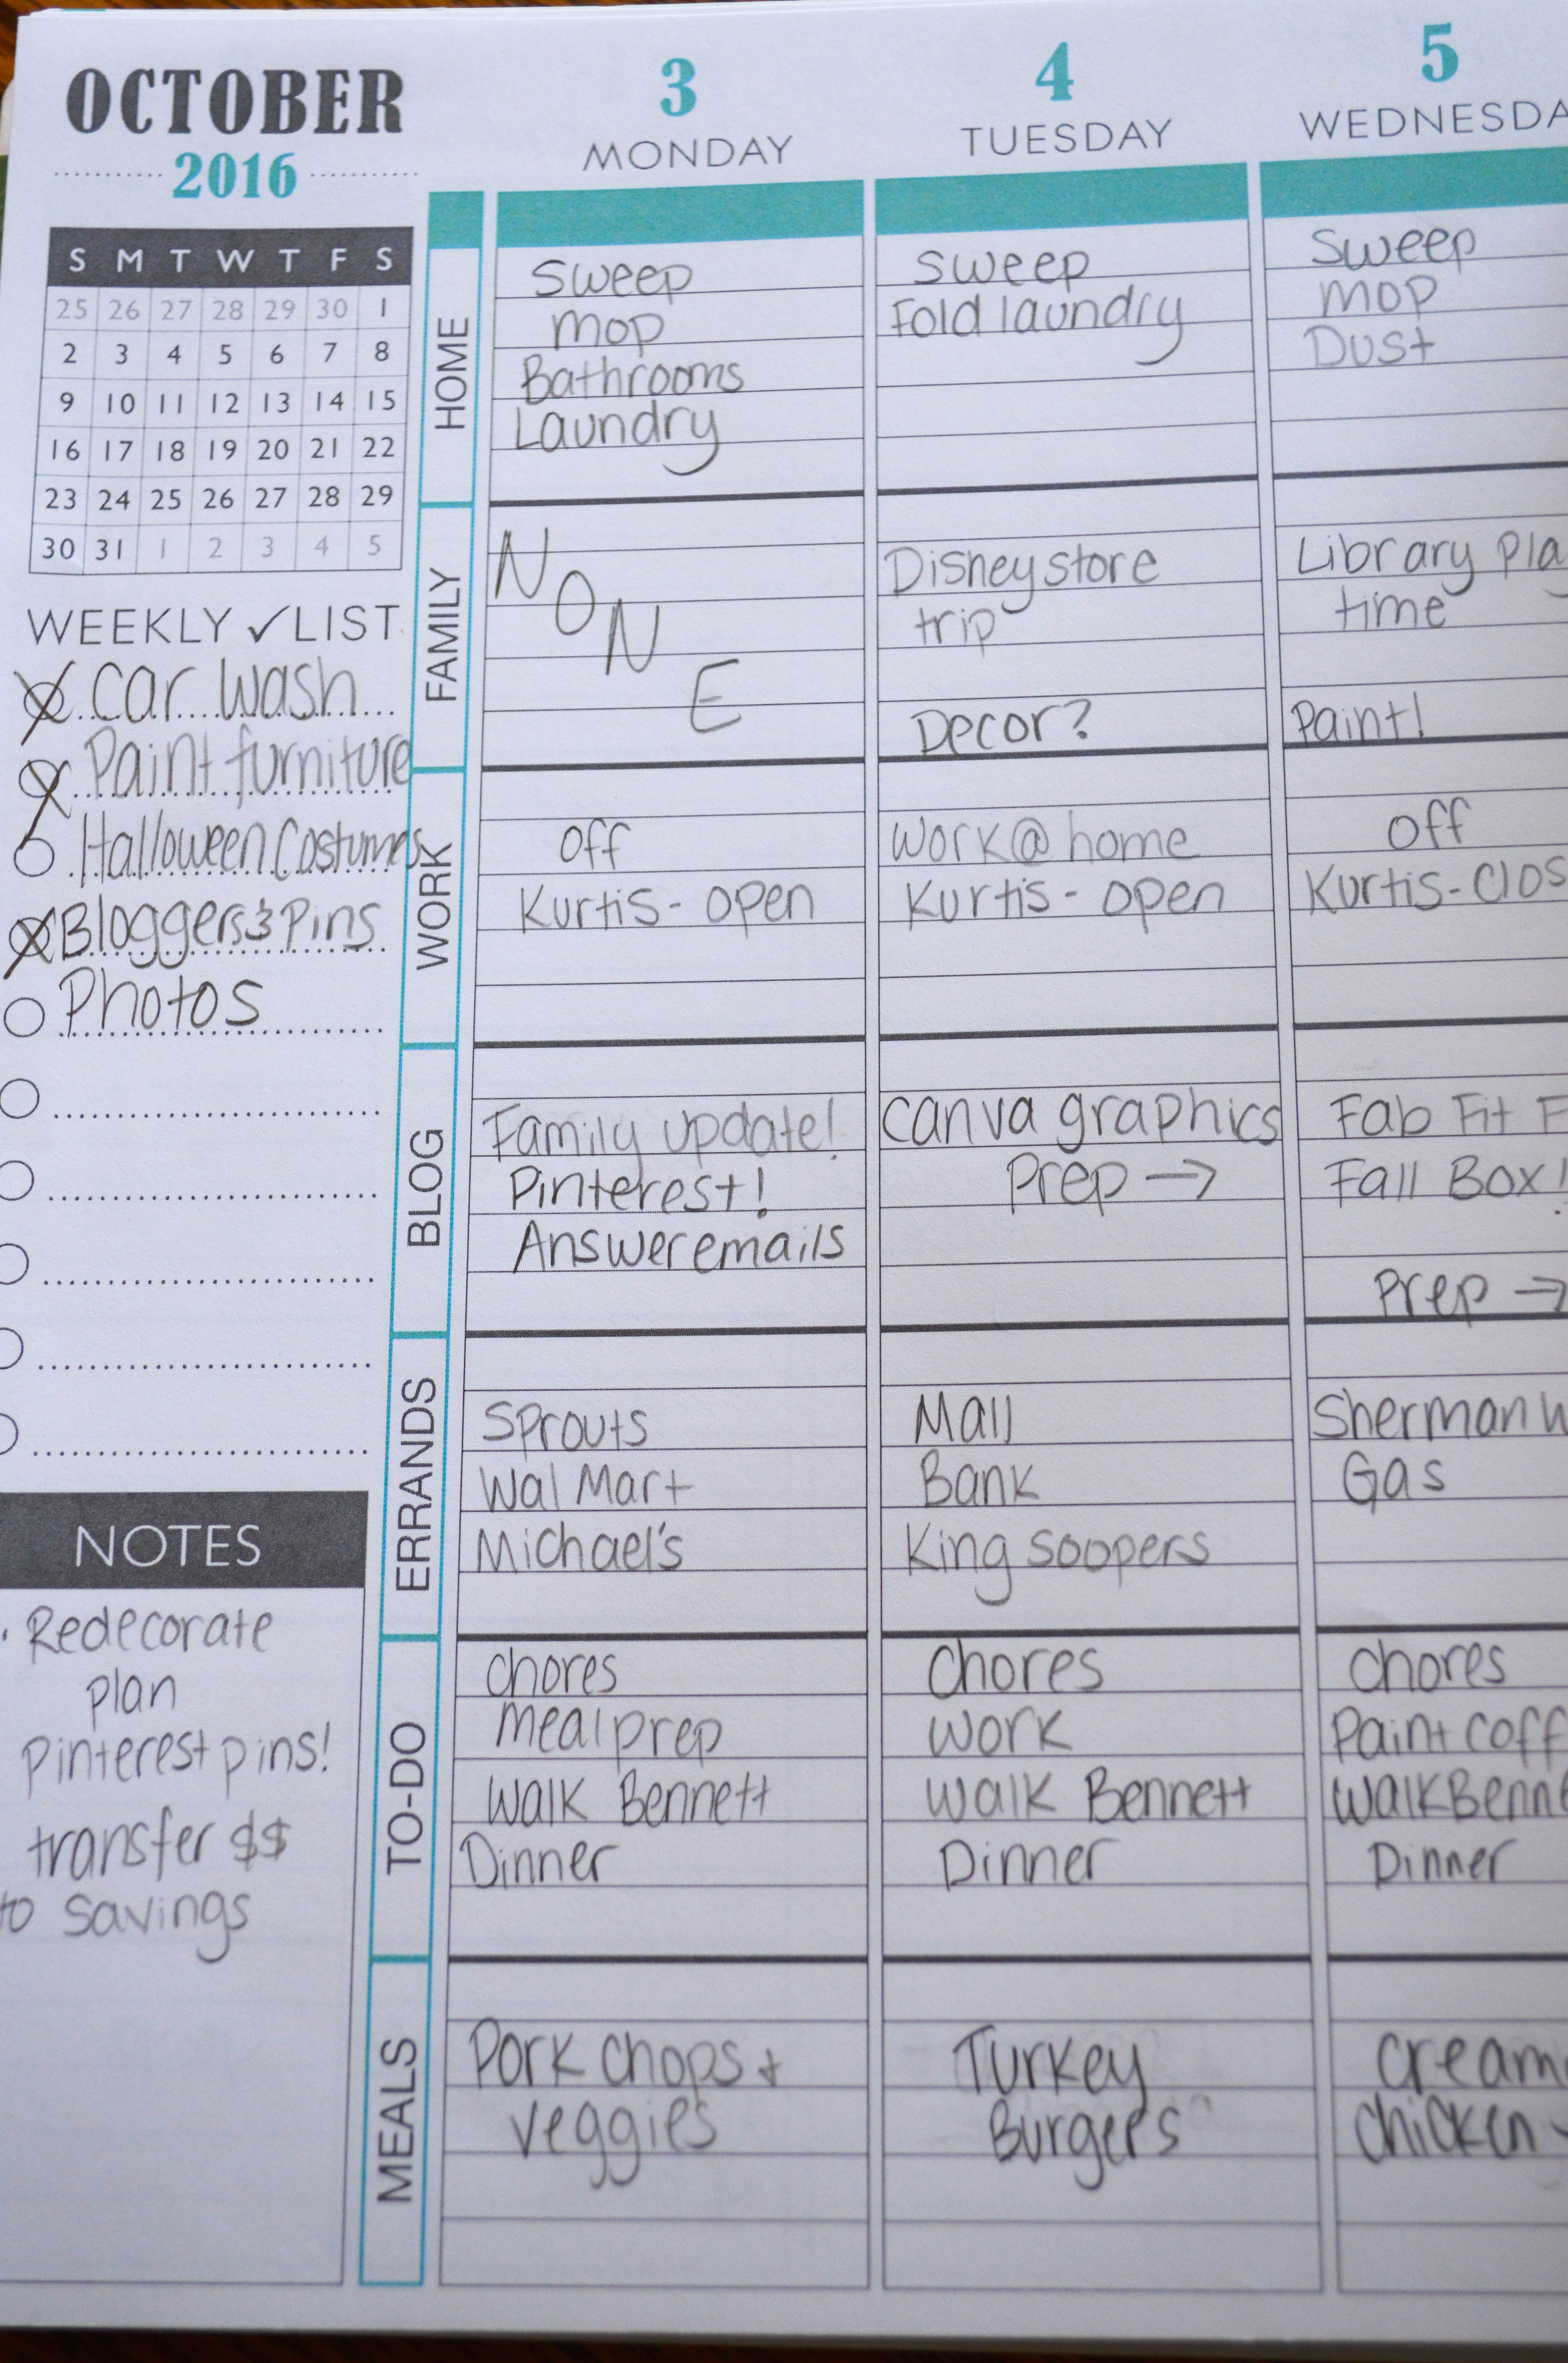 OCTOBER
2016
S M T W T F S
25 26 27 28 29 30 1
2 3 4 5 6 7 8
9 10 11 12 13 14 15
16 17 18 19 20 21 22
23 24 25 26 27 28 29
30 31 1 2 3 4 5
WEEKLY ✓LIST
Car wash
Paint furniture
Halloween Costumes
Bloggers & Pins
Photos
NOTES
· Redecorate
plan
Pinterest pins!
transfer $$
to savings
HOME
FAMILY
WORK
BLOG
ERRANDS
TO-DO
MEALS
3
MONDAY
Sweep
Mop
Bathrooms
Laundry
NONE
Off
Kurtis - open
Family update!
Pinterest!
Answer emails
Sprouts
Wal Mart
Michael's
Chores
Meal prep
Walk Bennett
Dinner
Pork Chops +
veggies
4
TUESDAY
Sweep
Fold laundry
Disney store
trip
Decor?
Work @ home
Kurtis - open
Canva graphics
Prep →
Mall
Bank
King Soopers
Chores
Work
Walk Bennett
Dinner
Turkey
Burgers
5
WEDNESDA
Sweep
Mop
Dust
Library Pla
time
Paint!
Off
Kurtis - Clos
Fab Fit F
Fall Box!
Prep →
Sherman W
Gas
Chores
Paint Coff
Walk Benne
Dinner
Cream
Chicken